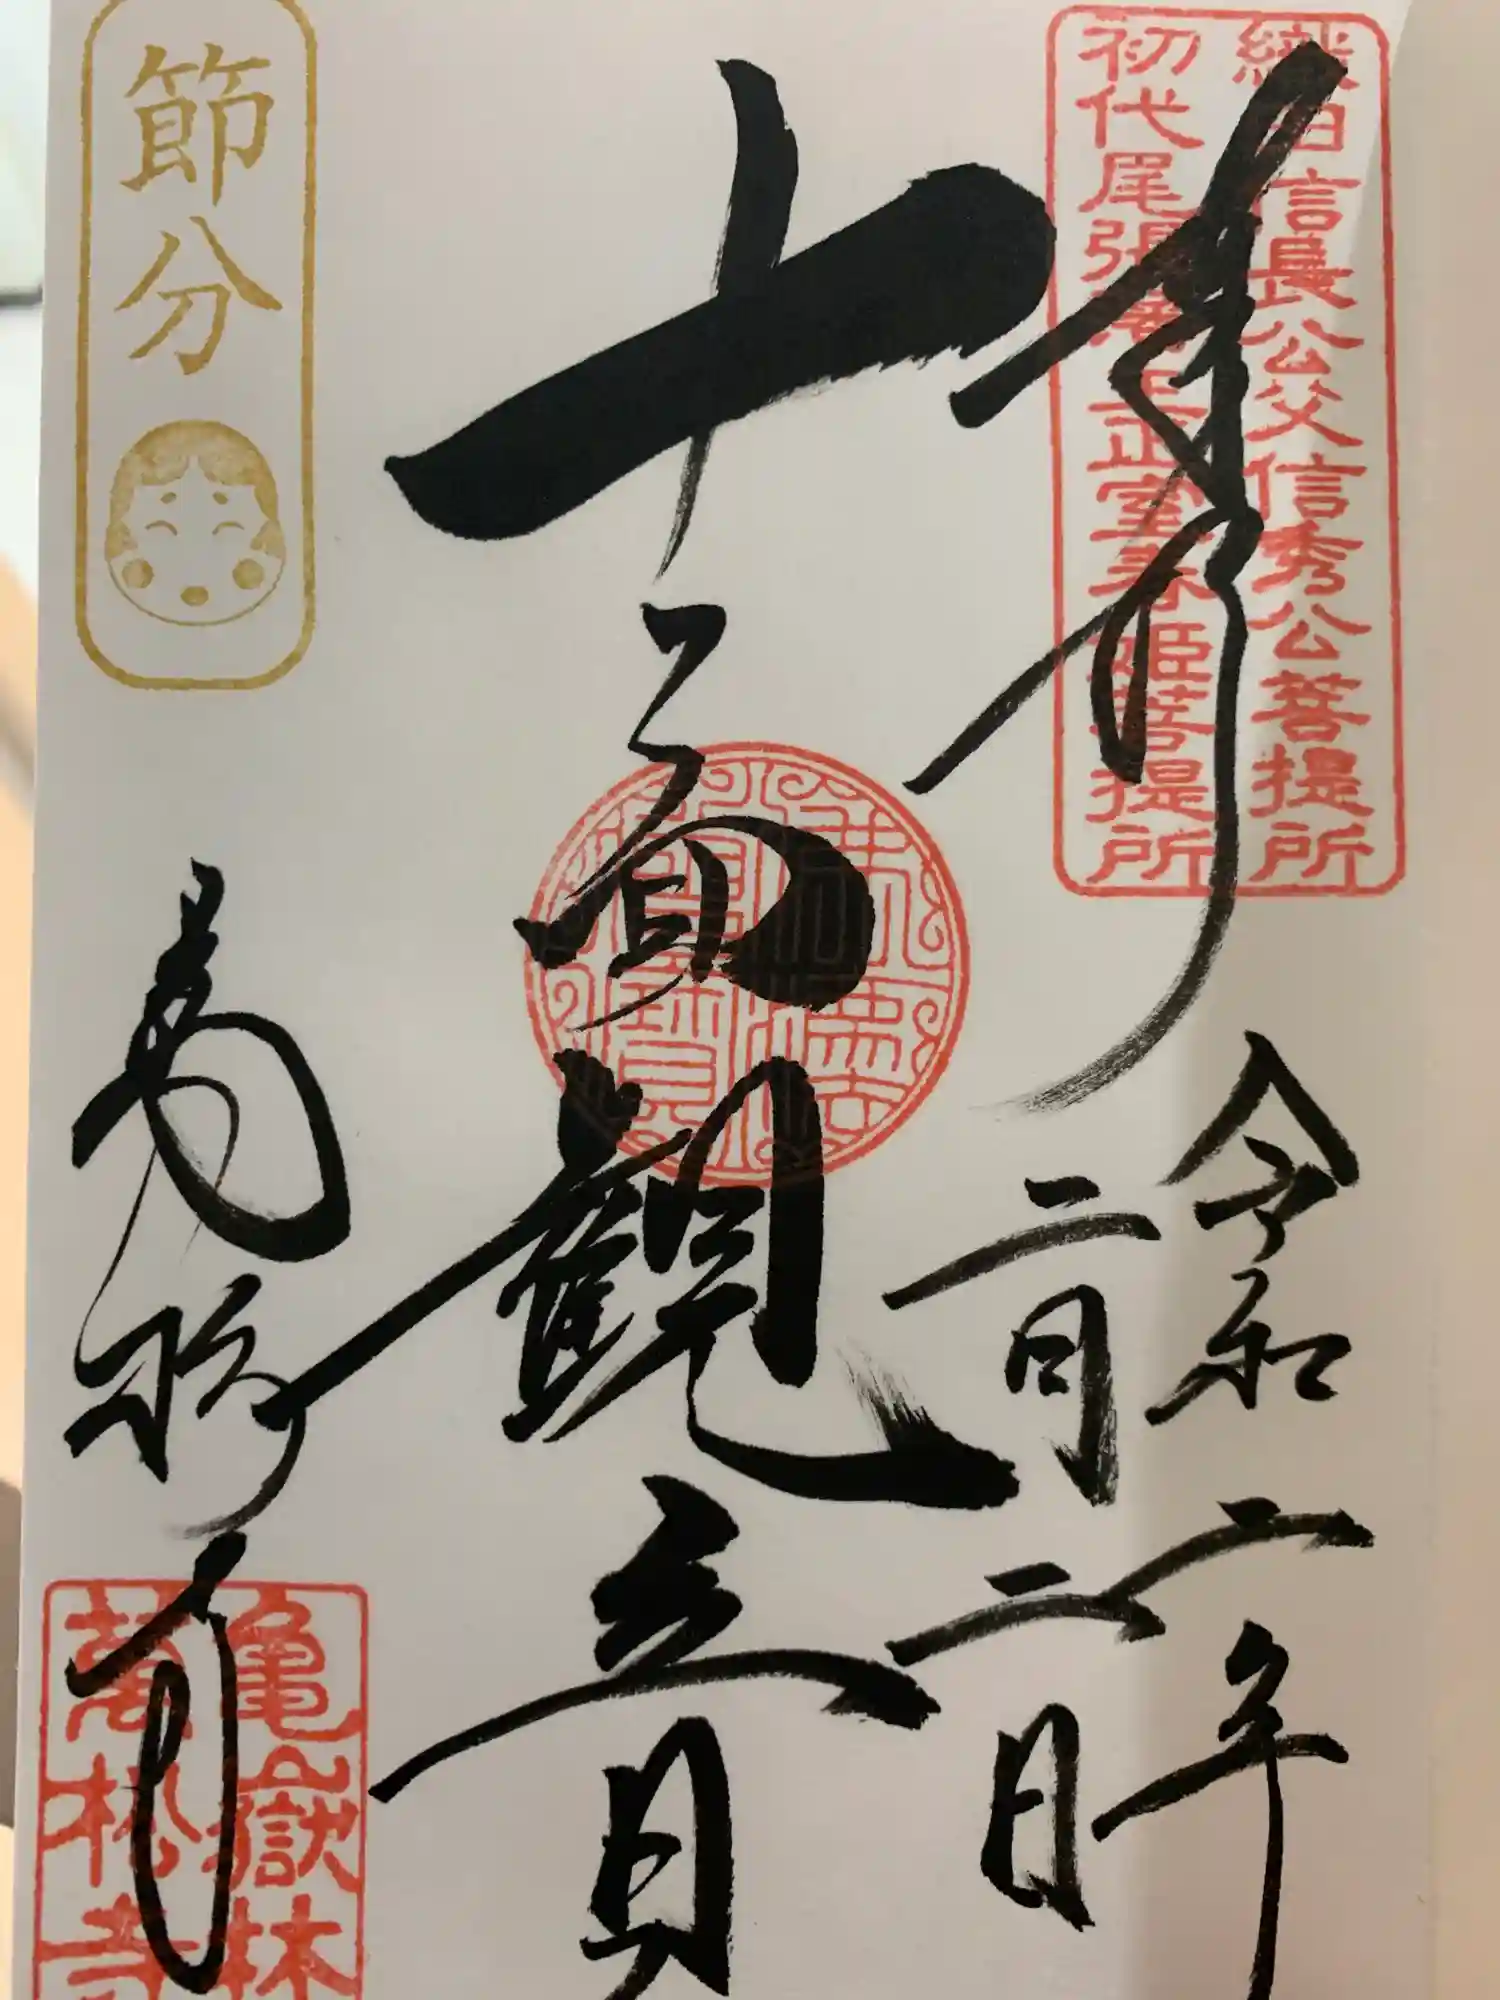 織田信長公父信秀公菩提所
初代尾張藩主正室春姫菩提所
奉拝
令和二年
二月二日
十一面観音
節分
萬松寺
亀嶽林
萬松寺